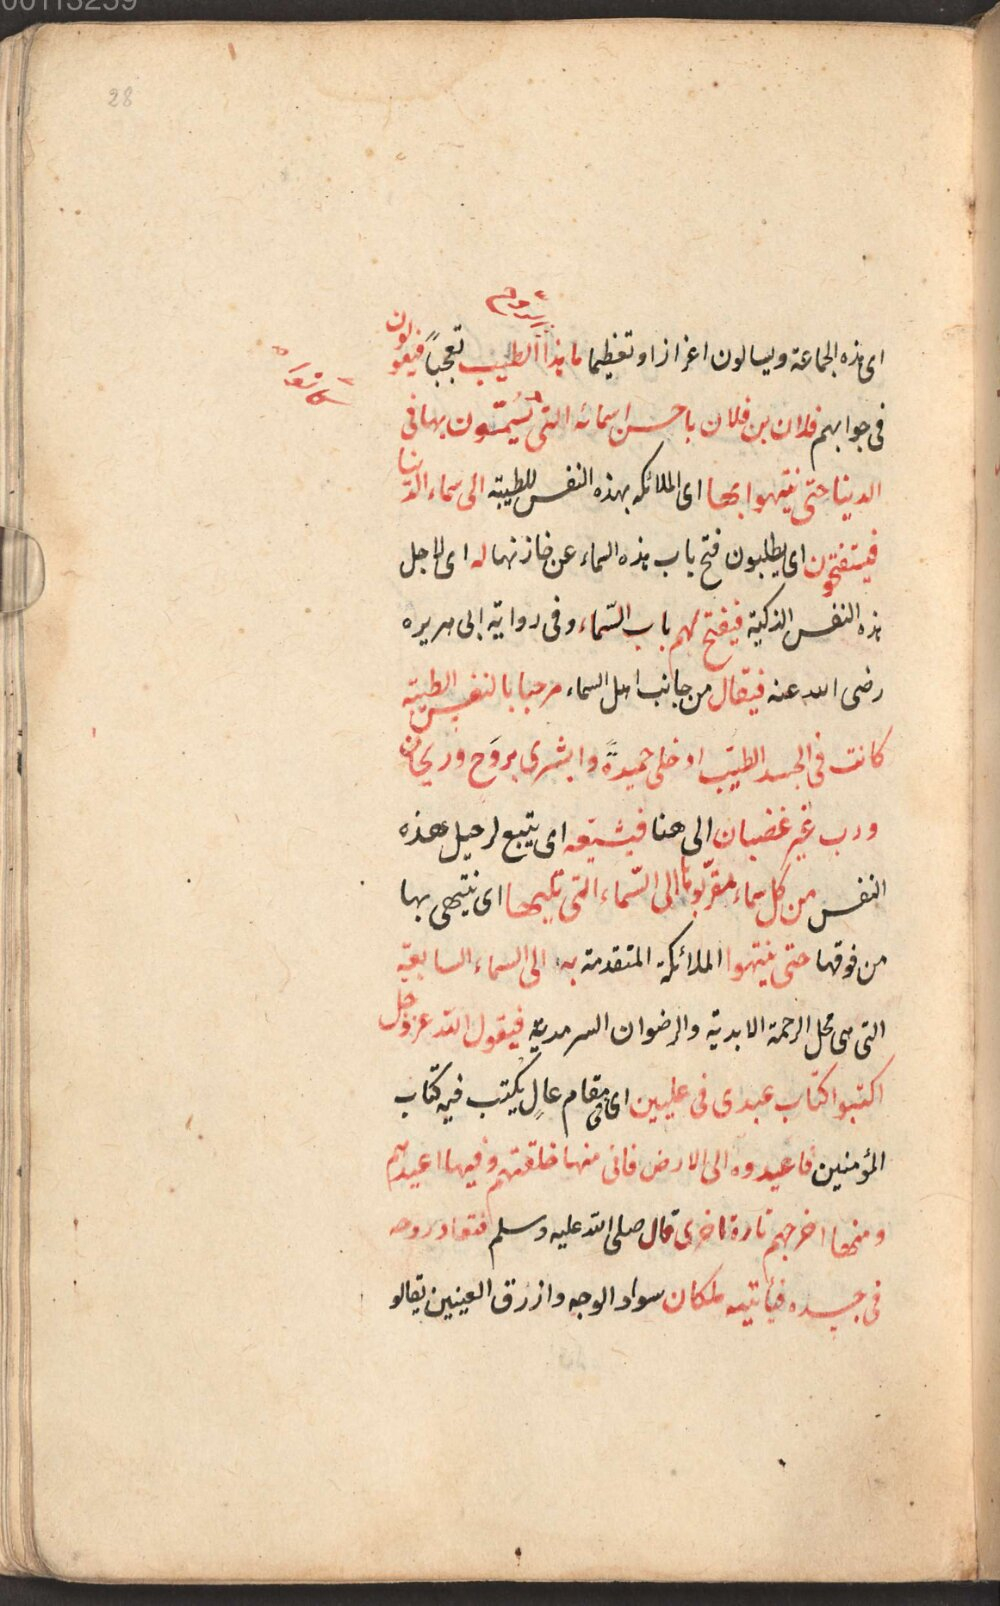 00113259
28
اى هذه الجماعة ويسالون اعزازا وتعظيما ما هذا الطيب تعجباً فيقولون
فى جوابهم فلان بن فلان باحسن اسمائه التى يُسَمّون بها فى
الدينا حتى ينتهوا بها اى الملائكه بهذه النفس للطيبة الى سماء الدنيا
فيستفتحون اى يطلبون فتح باب هذه السماء عن خازنها له اى لاجل
هذه النفس الذكية فيفتح لهم باب السّماء وفى رواية ابى هريره
رضى الله عنه فيقال من جانب اهل السماء مرحبا بالنفس الطيبة
كانت فى الجسد الطيّب ادخلى حميدةً وابشرى بروَح وريحان
ورب غير غضبان الى هنا فيشيّعه اى يتبع لرحيل هذه
النفس من كل سماء مقرّبوها الى السّماء التى تليها اى ينتهى بها
من فوقها حتى ينتهوا الملائكة المتقدمة به الى السماء السابعة
التى هى محل الرحمة الابدية والرضوان السرمدية فيقول الله عز وجل
اكتبوا كتاب عبدى فى عليين اى فى مقام عالٍ يكتب فيه كتاب
المؤمنين فاعيدوه الى الارض فانى منها خلقتهم وفيها اعيدهم
ومنها اخرجهم تارة اخرى قال صلى الله عليه وسلم فتعاد روحه
فى جسده فيأتيه ملكان سواد الوجه وازرق العينين يقالو